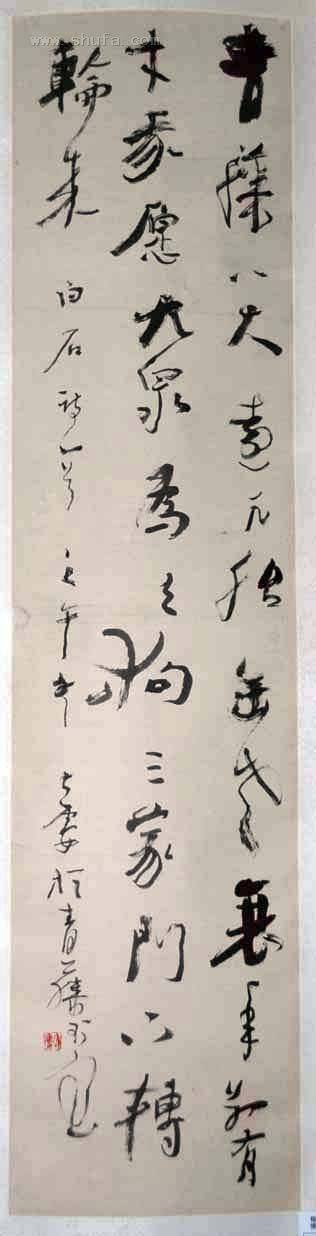 www.shufa.com
青藤八大遠凡胎缶老衰年别有
才我愿九泉為走狗三家門下轉
輪来 白石詩一首 壬午年 於青藤